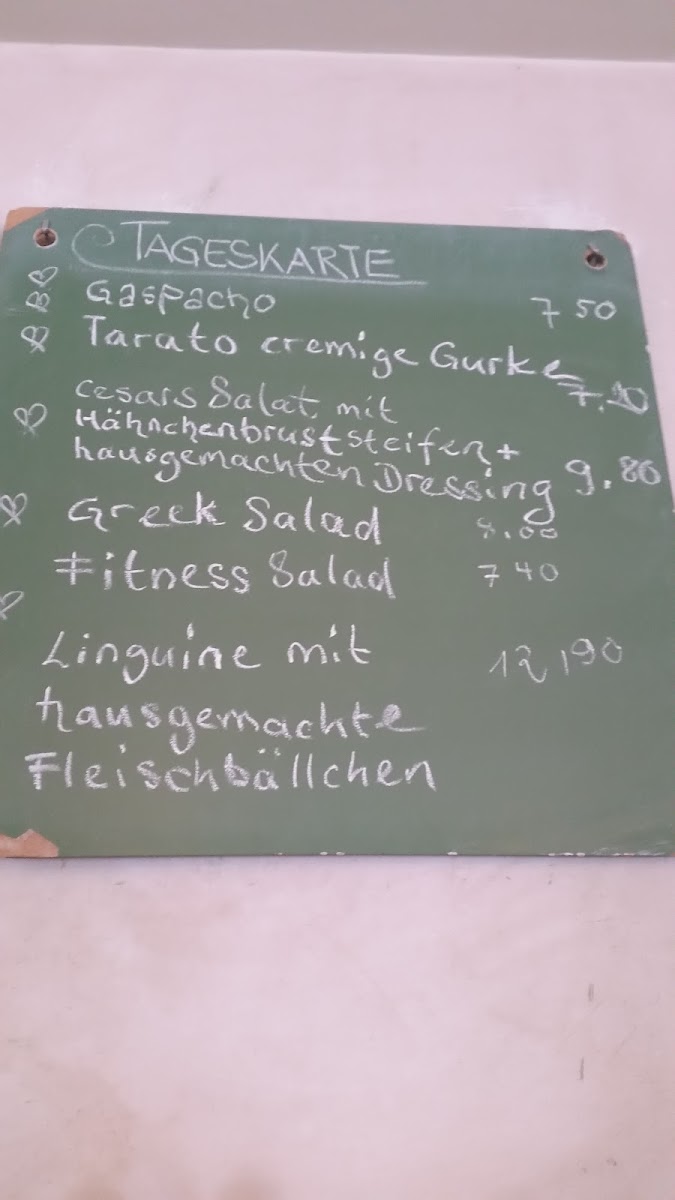 TAGESKARTE
Gaspacho 7 50
Tarato cremige Gurke
7.20
cesars Salat mit
Hähnchenbruststeifen +
hausgemachten Dressing 9.80
Greek Salad 8.00
Fitness Salad 7 40
Linguine mit 12,90
hausgemachte
Fleischbällchen